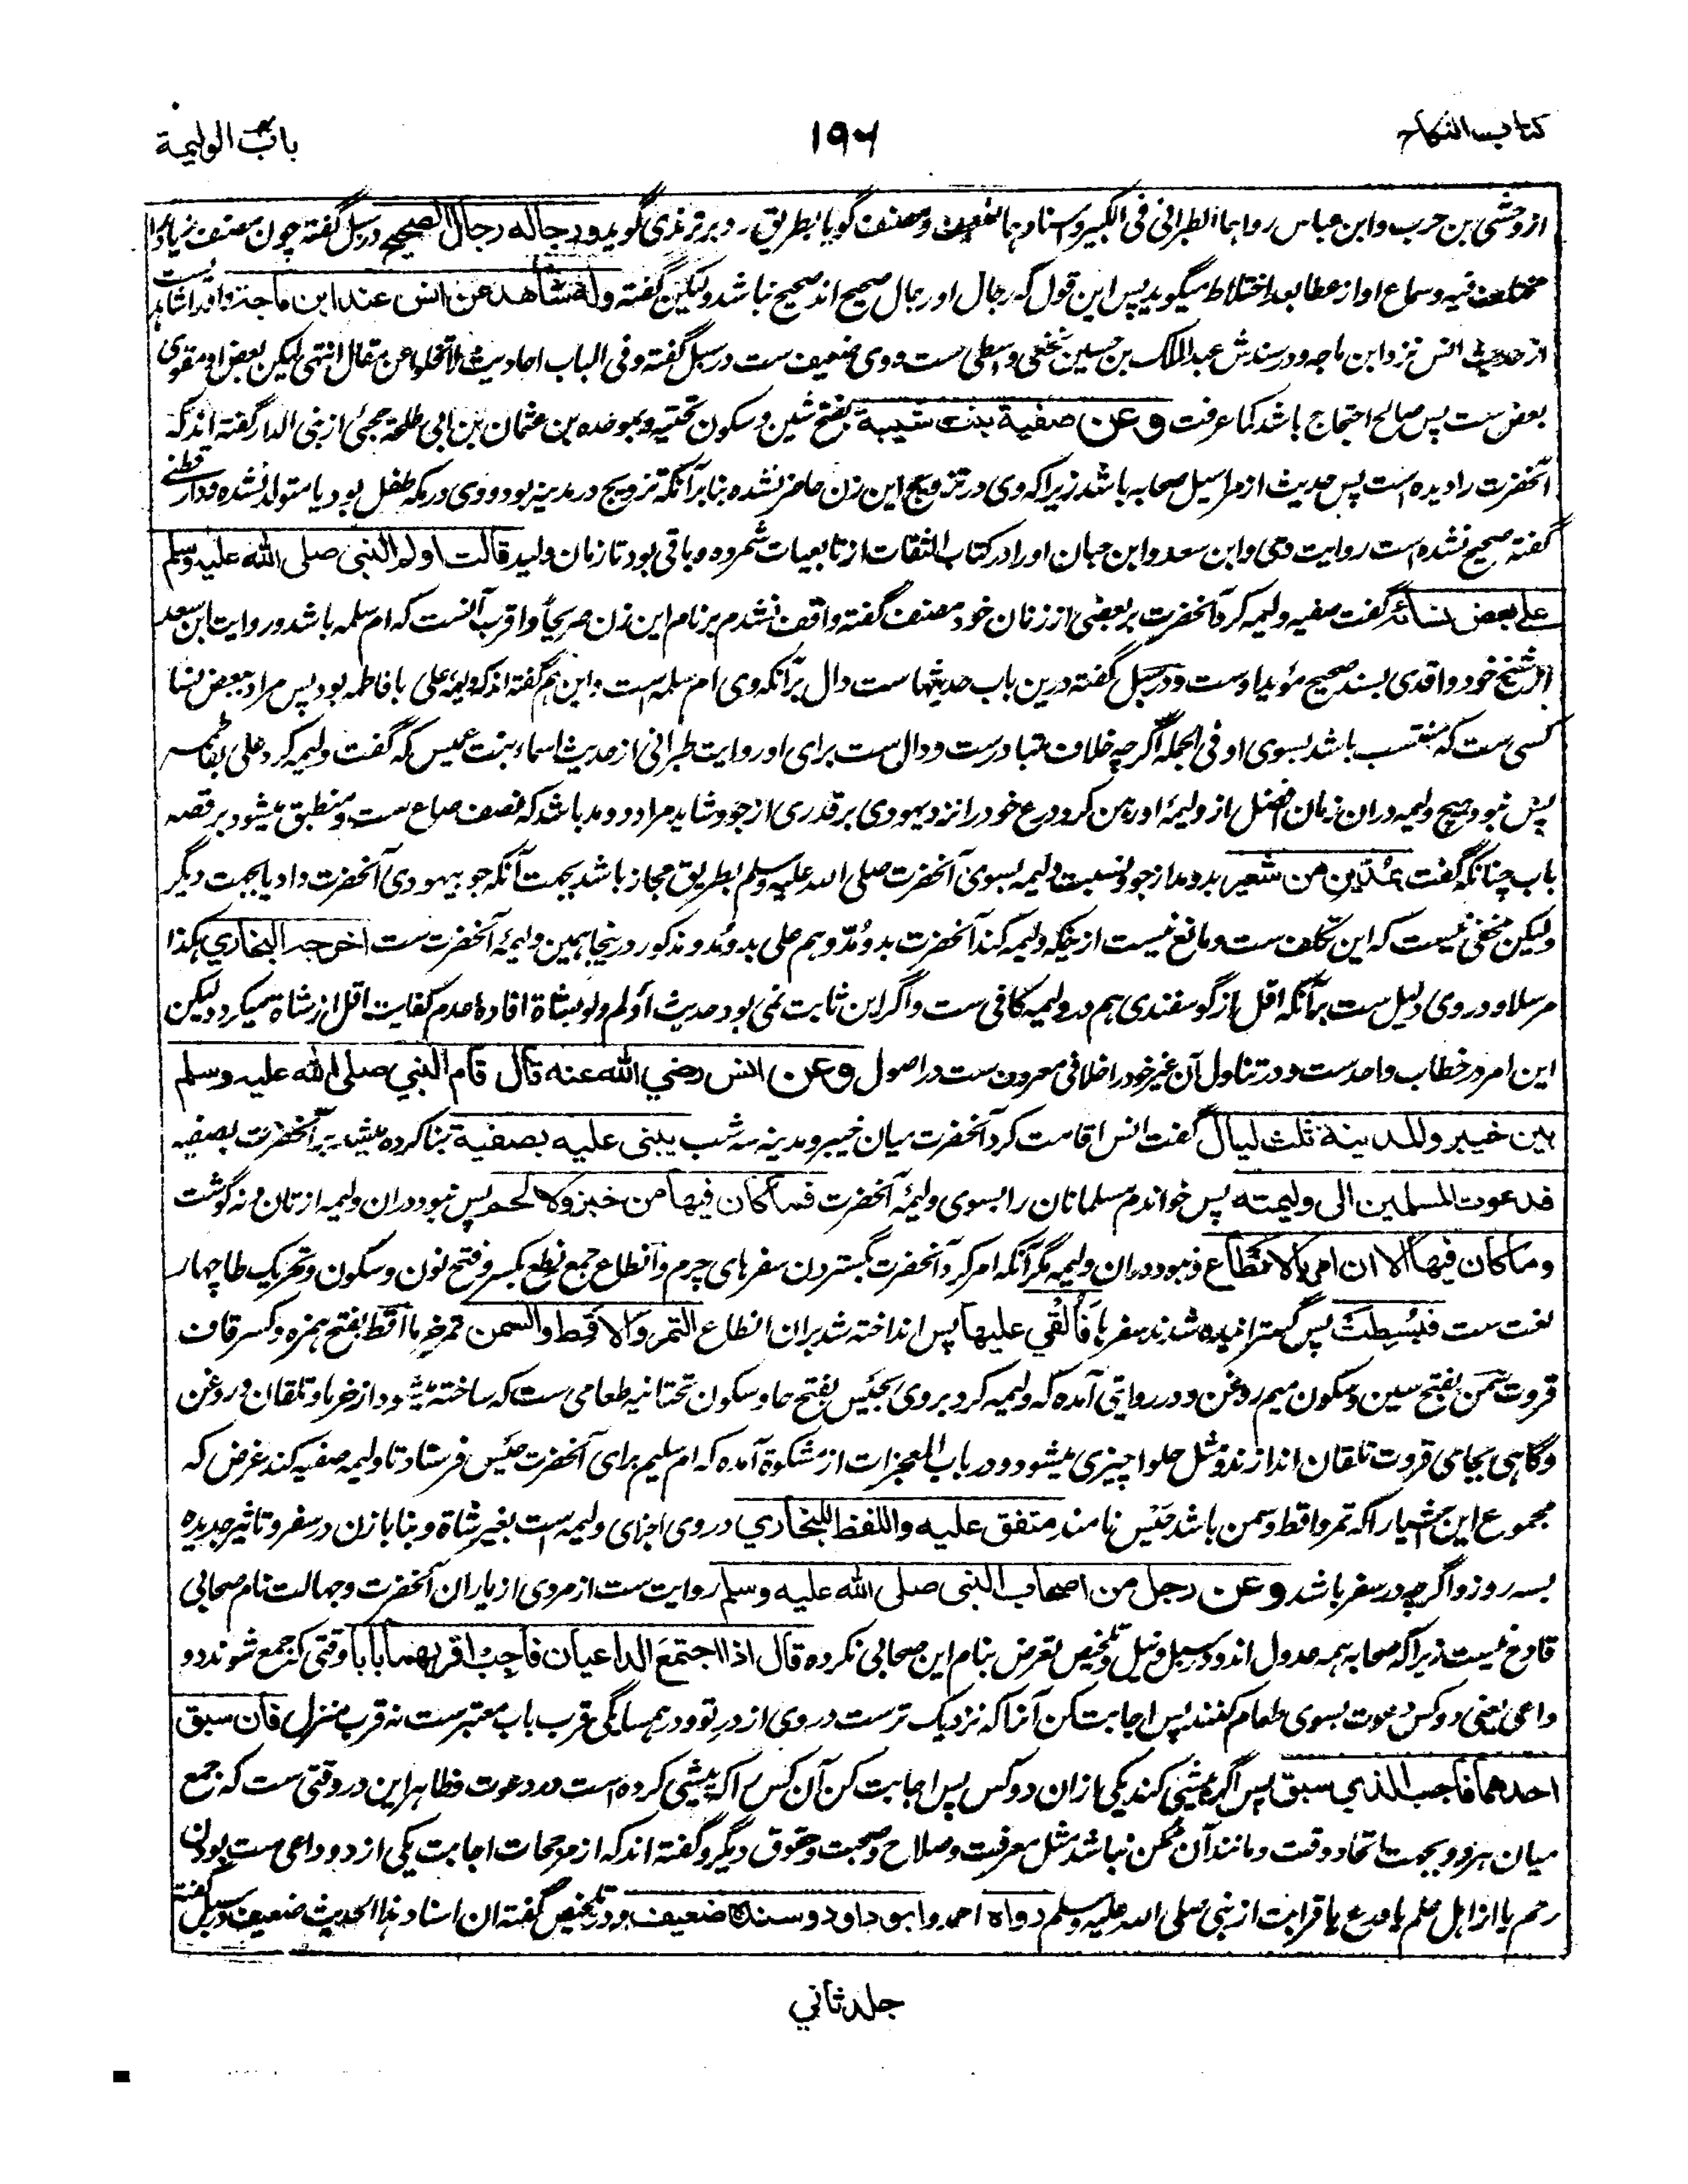 كتاب النكاح
١٩٦
باب الوليمة
از وحشی بن حرب وابن عباس رواهما الطبرانی فی الکبیر و اسناد هما ضعیف و مصنف گویا بطریق رد بر ترمذی گوید ورجاله رجال الصحیح در سبل گفته چون مصنف زیاد را
مختلف فیه و سماع او از عطا بعد اختلاط میگوید پس این قول که رجال او رجال صحیح اند صحیح نباشد ولیکن گفته وله شاهد عن انس عند ابن ماجة و او را شاهد ست
از حدیث انس نزد ابن ماجه و در سندش عبدالملک بن حسین نخعی واسطی ست و وی ضعیف ست در سبل گفته و فی الباب احادیث لا تخلوا عن مقال انتهی لیکن بعض او مقوی
بعض ست پس صالح احتجاج باشد کما عرفت وعن صفیة بنت شیبة بفتح شین و سکون تحتیه و بموحده بن عثمان بن ابی طلحه حجبی از بنی الدار گفته اند که
آنحضرت را دیده است پس حدیث از مراسیل صحابه باشد زیرا که وی در تزویج این زن حاضر نشده بنا بر آنکه تزویج در مدینه بود و وی در مکه طفل بود یا متولد نشده و دارقطنی
گفته صحیح نشده است روایت وی و ابن سعد و ابن حبان او را در کتاب الثقات از تابعیات شمرده و باقی بود تا زمان ولید قالت اولم النبی صلی الله علیه وسلم
علی بعض نسائه گفت صفیه ولیمه کرد آنحضرت بر بعضی از زنان خود مصنف گفته واقف نشدم بر نام این زن صریحا و اقرب آنست که ام سلمه باشد و روایت ابن سعد
از شیخ خود واقدی بسند صحیح مؤید اوست و در سبل گفته درین باب حدیثهاست دال بر آنکه وی ام سلمه است و این هم گفته اند که ولیمه علی با فاطمه بود پس مراد ببعض نسا
کسی ست که منتسب باشد بسوی او فی الجمله اگرچه خلاف متبادرست و دال ست برای او روایت طبرانی از حدیث اسماء بنت عمیس که گفت ولیمه کرد علی بفاطمه
پس نبود هیچ ولیمه دران زمان افضل از ولیمۀ او رهن کرد درع خود را نزد یهودی بر قدری از جو و شاید مراد دو مد باشد که نصف صاع ست و منطبق میشود بر قصه
باب چنانکه گفت بمدین من شعیر بدو مد از جو و نسبت ولیمه بسوی آنحضرت صلی الله علیه وسلم بطریق مجاز باشد بجهت آنکه جو بیهودی آنحضرت داد یا بجهت دیگر
ولیکن مخفی نیست که این تکلف ست و مانع نیست ازینکه ولیمه کند آنحضرت بدو مد و هم علی بدو مد و مذکور درینجا همین ولیمۀ آنحضرت ست اخرجه البخاري هکذا
مرسلا و در وی دلیل ست بر آنکه اقل از گوسفندی هم در ولیمه کافی ست و اگر این ثابت نمی بود حدیث أولم ولو بشاة افادۀ عدم کفایت اقل از شاة میکرد لیکن
این امر در خطاب واحد ست و در تناول آن غیر خود را خلافی معروف ست در اصول وعن انس رضي الله عنه قال قام النبي صلى الله علیه وسلم
بین خیبر والمدینة ثلث لیال گفت انس اقامت کرد آنحضرت میان خیبر و مدینه سه شب یبنی علیه بصفیة بنا کرده میشد بر آنحضرت بصفیه
فدعوت المسلمین الی ولیمته پس خواندم مسلمانان را بسوی ولیمۀ آنحضرت فما کان فیها من خبز ولا لحم پس نبود دران ولیمه از نان و نه گوشت
وما کان فیها الا ان امر بالانطاع ونبود دران ولیمه مگر آنکه امر کرد آنحضرت بگستردن سفرهای چرم و انطاع جمع نطع بکسر و فتح نون و سکون و تحریک طا چهار
لغت ست فبسطت پس گسترانیده شدند سفرها فألقي علیها پس انداخته شد بران انطاع التمر والاقط والسمن تمر خرما اقط بفتح همزه و کسر قاف
قروت سمن بفتح سین و سکون میم روغن و در روایتی آمده که ولیمه کرد بروی بحیس بفتح حا و سکون تحتانیه طعامی ست که ساخته میشود از خرما و تلقان و روغن
وگاهی بجای قروت تلقان اندازند و مثل حلوا چیزی میشود و در باب المعجزات از مشکوة آمده که ام سلیم برای آنحضرت حیس فرستاد تا ولیمه صفیه کند غرض که
مجموع این اشیا را که تمر و اقط و سمن باشد حیس نامند متفق علیه واللفظ للبخاري در وی اجزای ولیمه است بغیر شاة و بنا با زن در سفر و تاثیر جدیده
بسه روز و اگرچه در سفر باشد وعن رجل من اصحاب النبی صلی الله علیه وسلم روایت ست از مردی از یاران آنحضرت و جهالت نام صحابی
قادح نیست زیرا که صحابه همه عدول اند و در سبل و نیل و تلخیص تعرض بنام این صحابی نکرده قال اذا اجتمع الداعیان فاجب اقربهما بابا وقتی که جمع شوند دو
داعی یعنی دو کس دعوت بسوی طعام کنند پس اجابت کن آنرا که نزدیک ترست در وی از در تو و در همسایگی قرب باب معتبرست نه قرب منزل فان سبق
احدهما فاجب الذي سبق پس اگر پیشی کند یکی ازان دو کس پس اجابت کن آن کس را که پیشی کرده است در دعوت فظاهر این در وقتی ست که جمع
میان هر دو بجهت اتحاد وقت و مانند آن ممکن نباشد مثل معرفت و صلاح و صحبت و حقوق دیگر و گفته اند که از مرجحات اجابت یکی از دو داعی ست بودن
رحم یا از اهل علم یا ورع یا قرابت از نبی صلی الله علیه وسلم رواه احمد وابو داود وسنده ضعیف و در تلخیص گفته ان اسناد هذا الحدیث ضعیف در سبل گفته
جلد ثاني